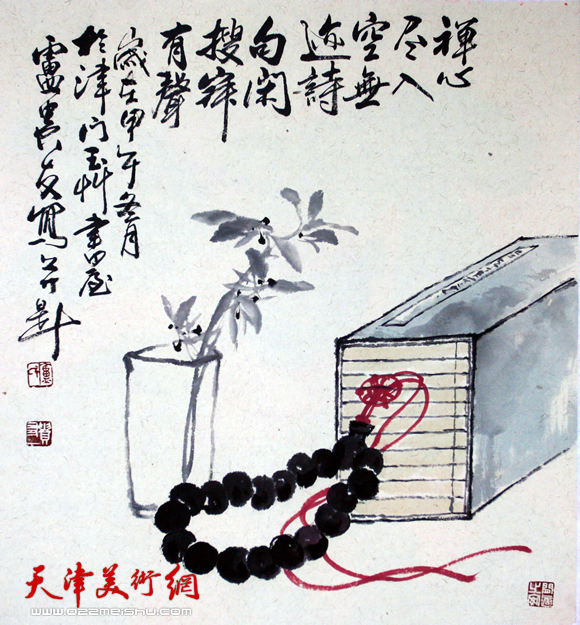 禪心
尽入
空無
迹詩
句闲
搜寂
有聲
歲在甲午冬月
於津门玉艸書屋
盧貴友寫
天津美術網
www.022meishu.com